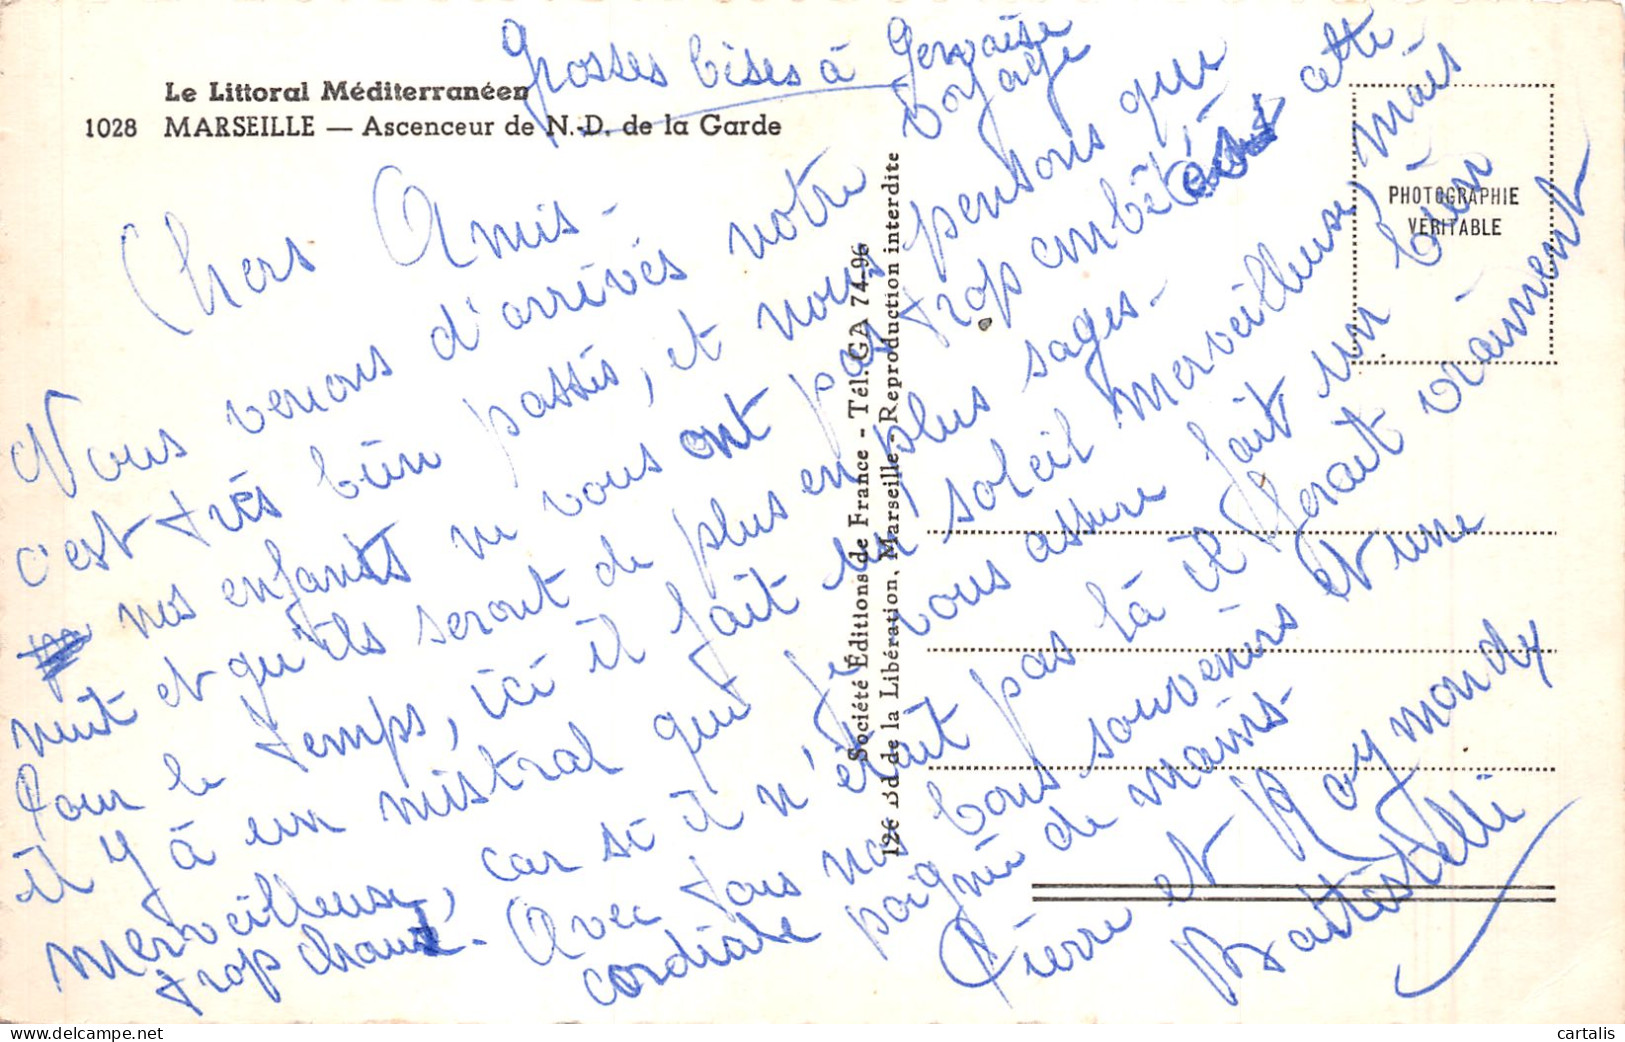 Grosses bises à Gervaise
Le Littoral Méditerranéen
1028 MARSEILLE — Ascenceur de N.-D. de la Garde
PHOTOGRAPHIE
VÉRITABLE
Chers Amis -
Nous venons d'arrivés notre voyage
c'est très bien passés, et nous pensons que
nos enfants ne vous ont pas trop embêtés cette
nuit et qu'ils seront de plus en plus sages -
Pour le temps, ici il fait un soleil merveilleuse, mais
il y à un mistral qui je vous assure fait un bien
merveilleuse, car si il n'était pas là il ferait vraiment
trop chaud - Avec tous nos bons souvenirs et une
cordiale poignée de mains -
Pierre et Raymondy
Battistelli
Société Éditions de France - Tél. GA 74-96
12c Bd de la Libération, Marseille - Reproduction interdite
cartalis